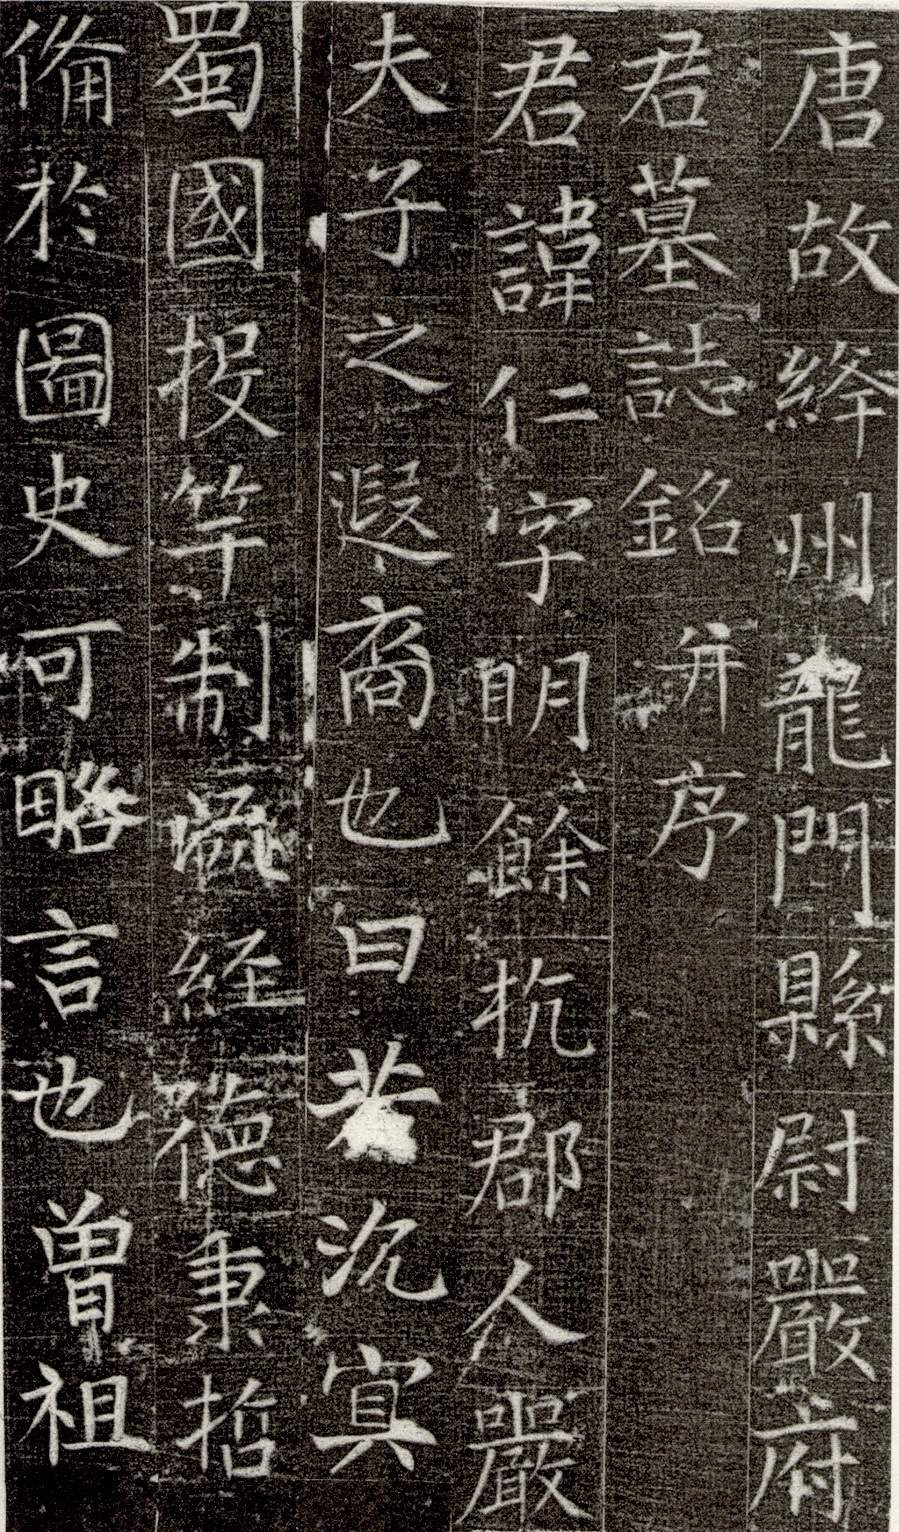 唐故絳州龍門縣尉嚴府
君墓誌銘并序
君諱仁字明餘杭郡人嚴
夫子之遐裔也曰若沉寘
蜀國投竿制經德秉哲
俻於圖史可略言也曽祖